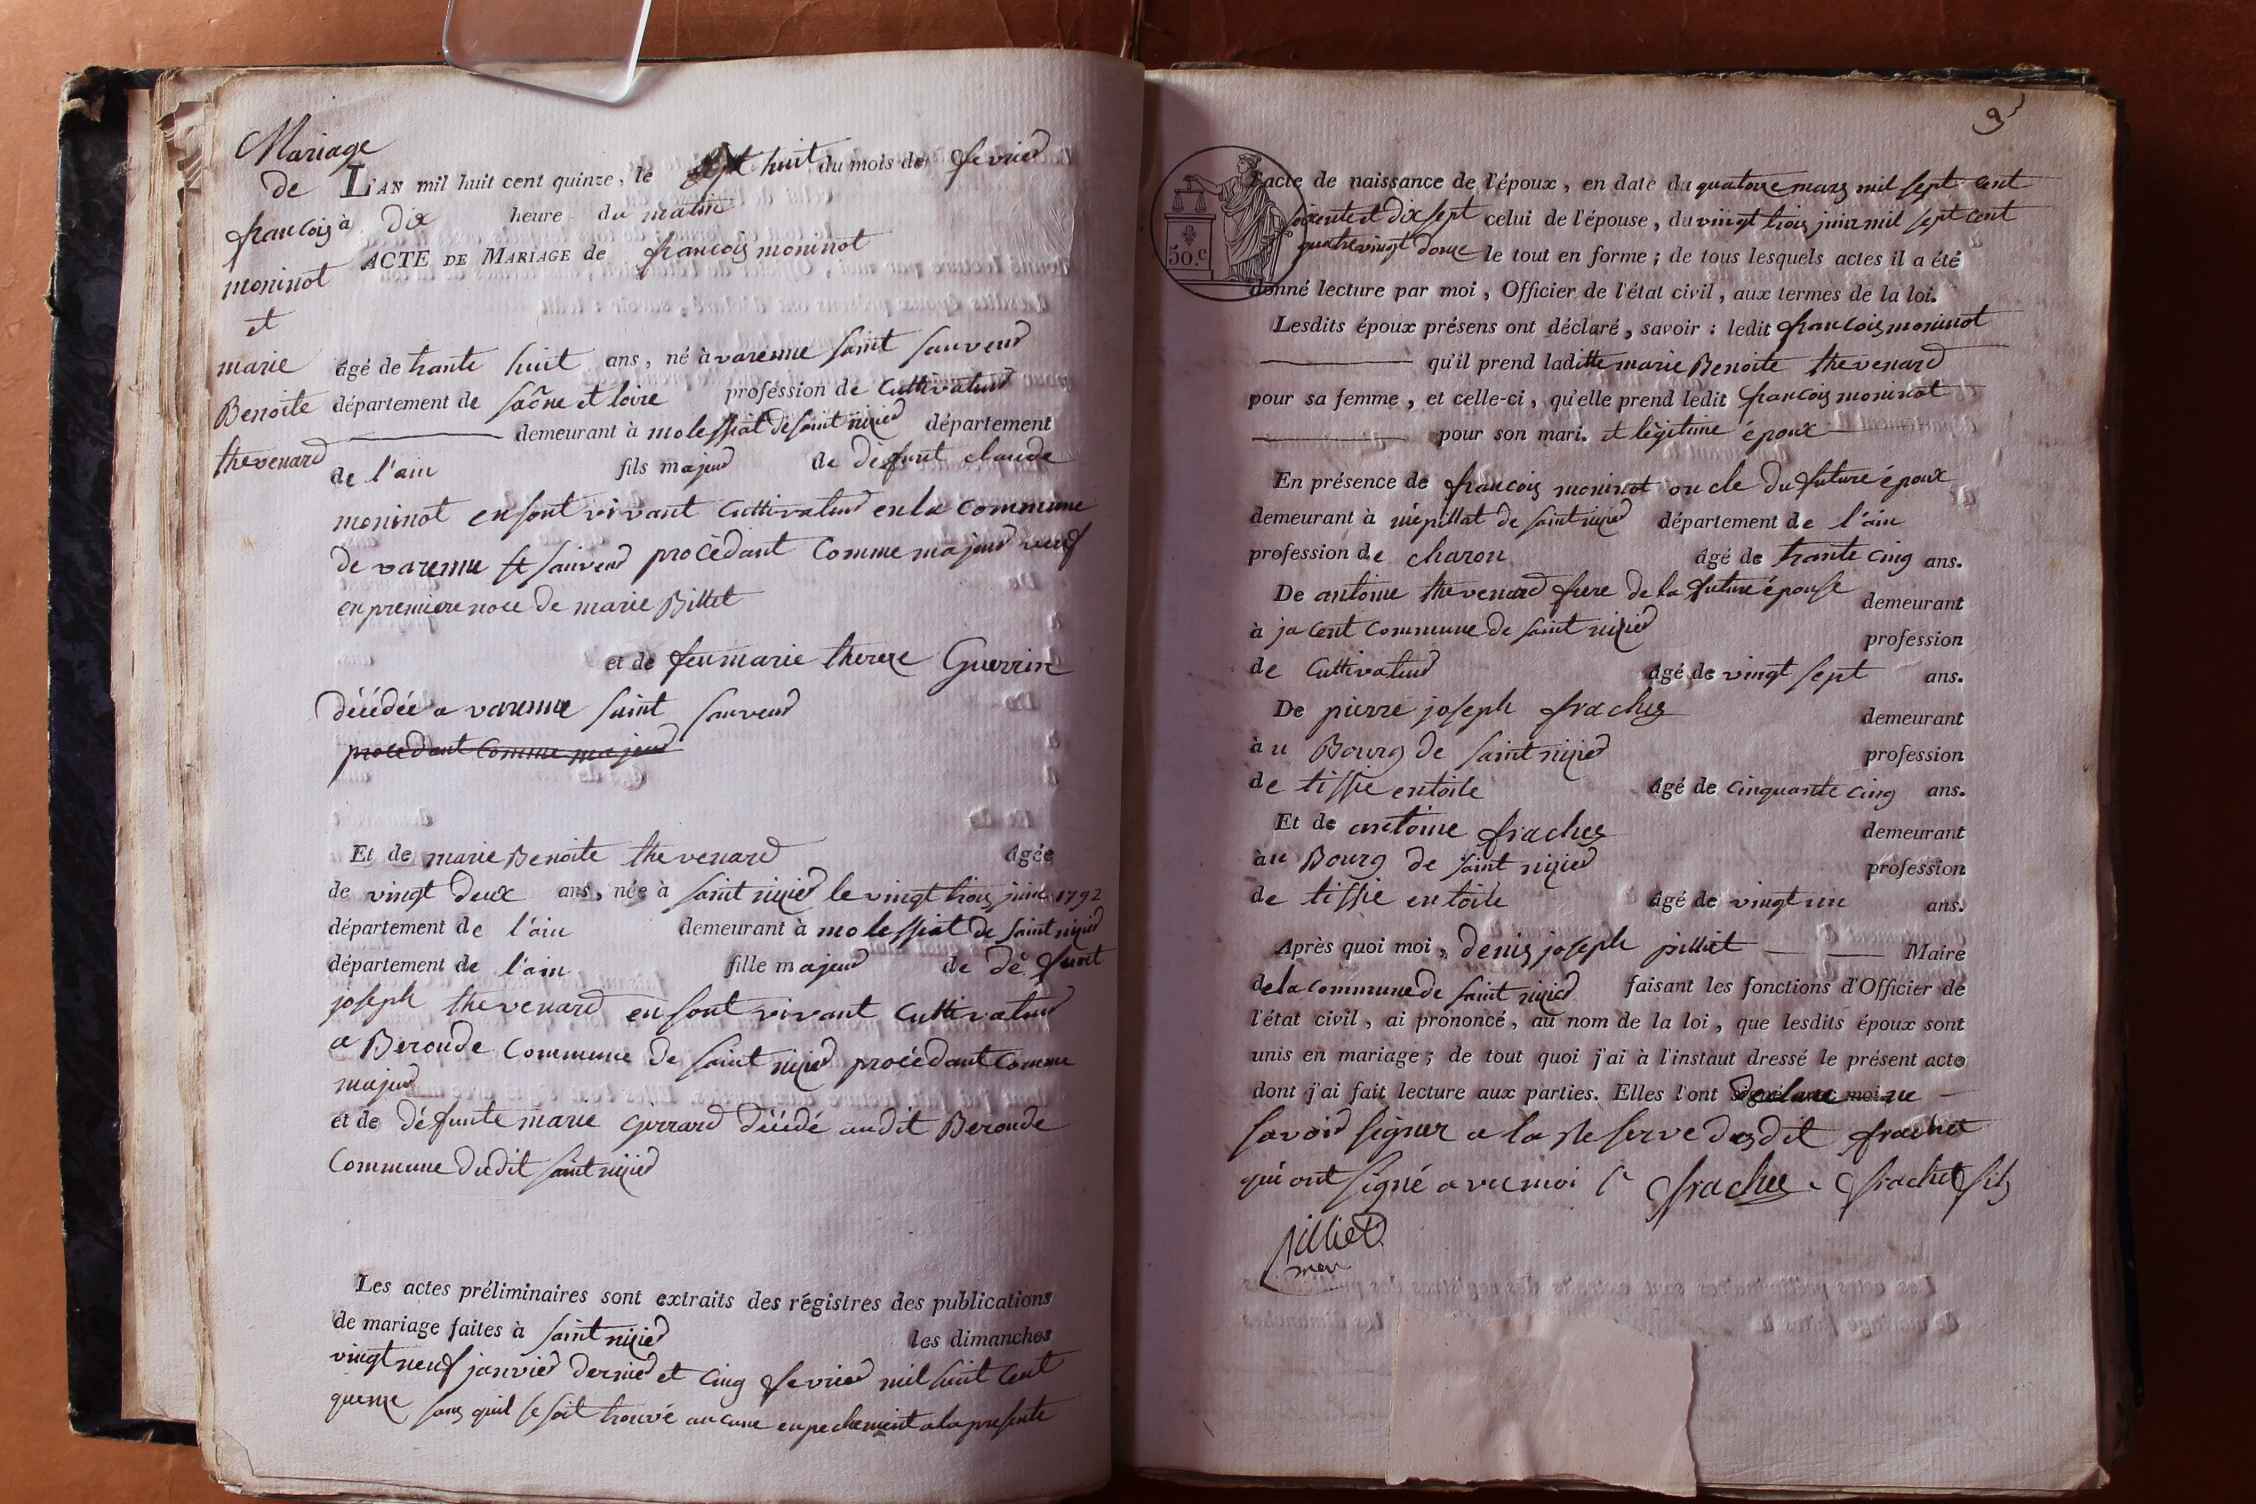 Mariage
de
françois
moninot
et
marie
Benoite
thevenard
L'AN mil huit cent quinze, le huit du mois de fevrier
à dix heure du matin
ACTE DE MARIAGE de françois moninot
âgé de trante huit ans, né à varenne saint sauveur
département de saône et loire profession de cultivateur
demeurant à molessiat de saint nizier département
de l'ain fils majeur de défunt claude
moninot en sont vivant cultivateur en la commune
de varenne st sauveur procèdant comme majeur veuf
en premiere noce de marie Billet
et de feu marie therese Guerrin
décédée a varenne saint sauveur
procèdant comme majeur
Et de marie Benoite thevenard âgée
de vingt deux ans, née à saint nizier le vingt trois juin 1792
département de l'ain demeurant à molessiat de saint nizier
département de l'ain fille majeur de défunt
joseph thevenard en sont vivant cultivateur
a Beronde commune de saint nizier procédant comme
majeur
et de défunte marie Girrard décédé audit Beronde
commune dudit saint nizier
Les actes préliminaires sont extraits des régistres des publications
de mariage faites à saint nizier les dimanches
vingt neuf janvier dernier et cinq fevrier mil huit cent
quenze sans quil se soit trouvé aucune enpechement a la presente
9
50.c
l'acte de naissance de l'époux, en date du quatorze mars mil sept cent
soixente et dix sept celui de l'épouse, du vingt trois juin mil sept cent
quatrevingt douze le tout en forme; de tous lesquels actes il a été
donné lecture par moi, Officier de l'état civil, aux termes de la loi.
Lesdits époux présens ont déclaré, savoir: ledit françois moninot
qu'il prend laditte marie Benoite thevenard
pour sa femme, et celle-ci, qu'elle prend ledit françois moninot
pour son mari. et légitime époux
En présence de françois moninot oncle du future époux
demeurant à népillat de saint nizier département de l'ain
profession de charon âgé de trante cinq ans.
De antoine thevenard frere de la future épouse demeurant
à jacent commune de saint nizier profession
de cultivateur âgé de vingt sept ans.
De pierre joseph frachet demeurant
àu Bourg de saint nizier profession
de tissie en toile âgé de cinquante cinq ans.
Et de antoine frachet demeurant
àu Bourg de saint nizier profession
de tissie en toile âgé de vingt un ans.
Après quoi moi, denis joseph pilliet Maire
de la commune de saint nizier faisant les fonctions d'Officier de
l'état civil, ai prononcé, au nom de la loi, que lesdits époux sont
unis en mariage; de tout quoi j'ai à l'instaut dressé le présent acte
dont j'ai fait lecture aux parties. Elles l'ont declare ne
savoir signer a la reserve desdit frachet
qui ont signé avec moi frachet frachet fils
pilliet